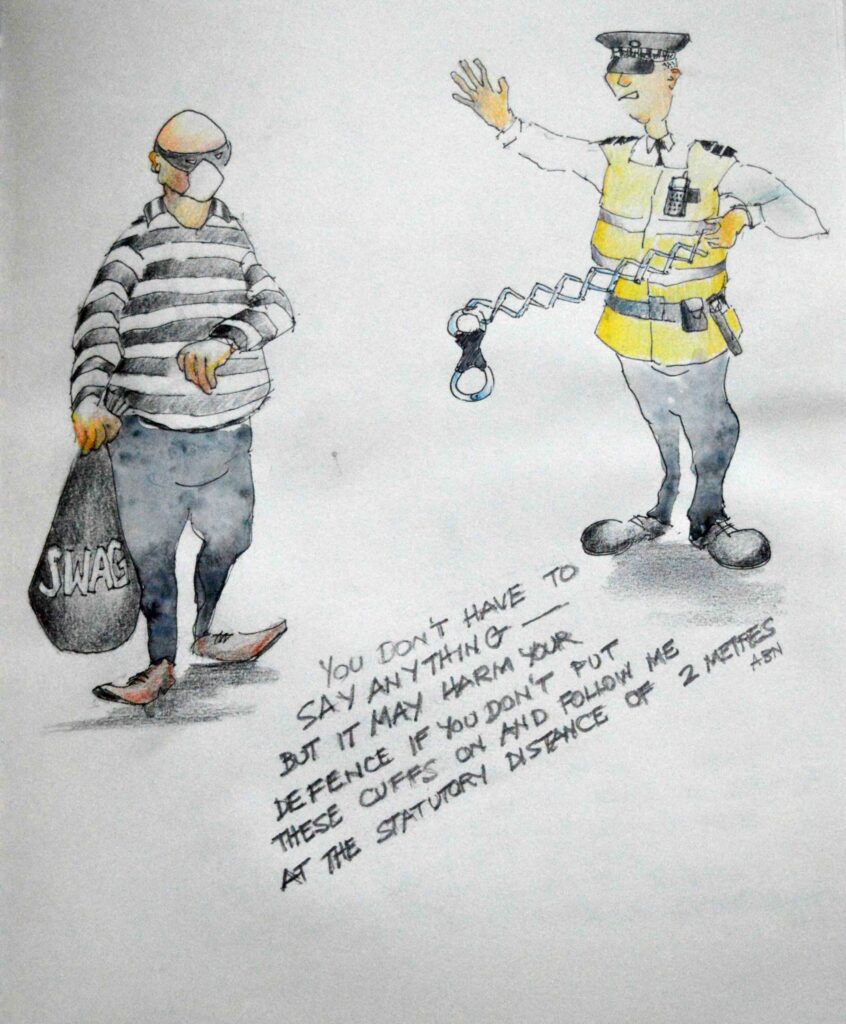 SWAG
YOU DON'T HAVE TO
SAY ANYTHING —
BUT IT MAY HARM YOUR
DEFENCE IF YOU DON'T PUT
THESE CUFFS ON AND FOLLOW ME
AT THE STATUTORY DISTANCE OF 2 METRES
ABN